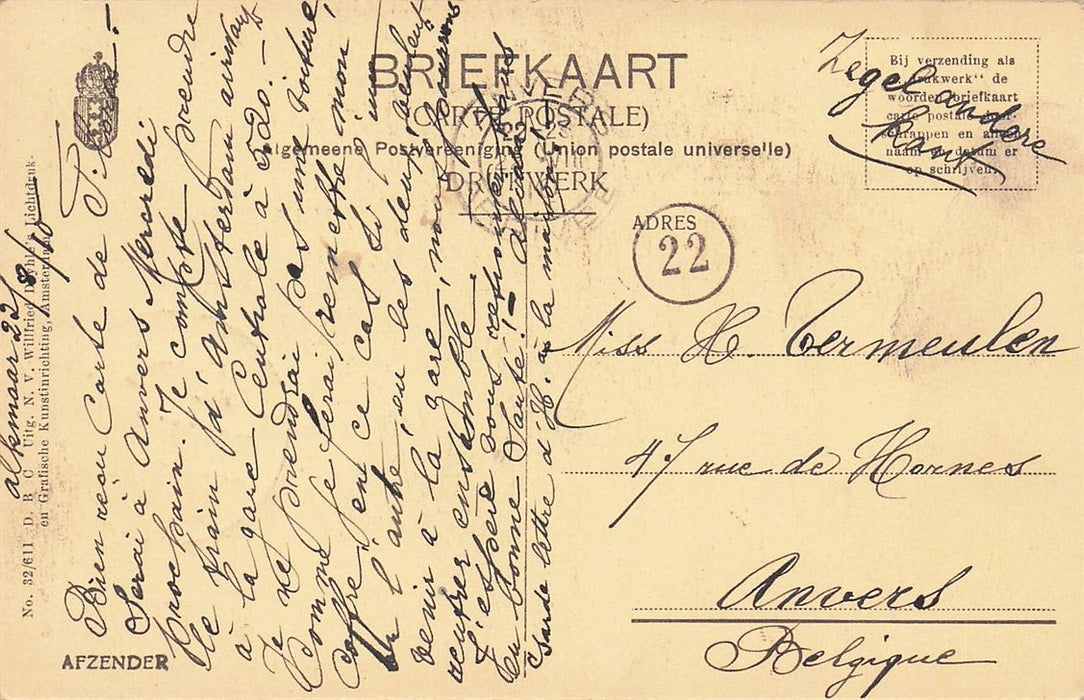 BRIEFKAART
(CARTE POSTALE)
Algemeene Postvereeniging (Union postale universelle)
DRUKWERK
Bij verzending als
„drukwerk“ de
woorden briefkaart
carte postale
schrappen en
naam en datum er
op schrijven.
Zegel andere
Kant
ADRES
22
Miss H. Termeulen
47 rue de Hornes
Anvers
Belgique
No. 32/611 D. B C Uitg. N. V. Wilfried Deyhle, Lichtdruk-
en Grafische Kunstinrichting, Amsterdam
AFZENDER
Alkmaar 22/8/
Bien reçu Carte de
Serai à Anvers Mercredi
prochain. Je compte prendre
le train d'Amsterdam arrivant
à la gare Centrale à
Je ne prendrai pas une voiture,
Comme je ferai remettre mon
coffre, en ce cas si l'un
ou l'autre, ou les deux, veulent
venir à la gare, nous pourrons
rentrer ensemble.
J'espère vous retrouver tous
en bonne Santé! -
lettre d'H. à la maison